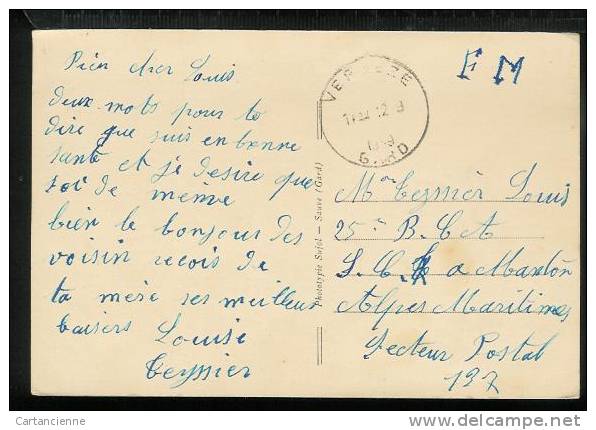 Bien cher Louis
deux mots pour te
dire que suis en bonne
santé et je desire que
toi de même
bien le bonjour des
voisin recois de
ta mère ses meilleur
baisers Louise
Teyssier
Phototypie Sujol — Sauve (Gard)
VERGEZE
12
GARD
F M
Mr Teyssier Louis
25e B. C A
S. E. R a Manton
Alpes Maritimes
Secteur Postal
197
Cartancienne
www.delcampe.net